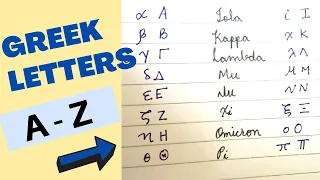 GREEK
LETTERS
A - Z
α A Iota i I
β B Kappa x K
γ Γ Lambda λ Λ
δ Δ Mu μ M
ε E Nu ν N
ζ Z Xi ξ Ξ
η H Omicron o O
θ Θ Pi π Π